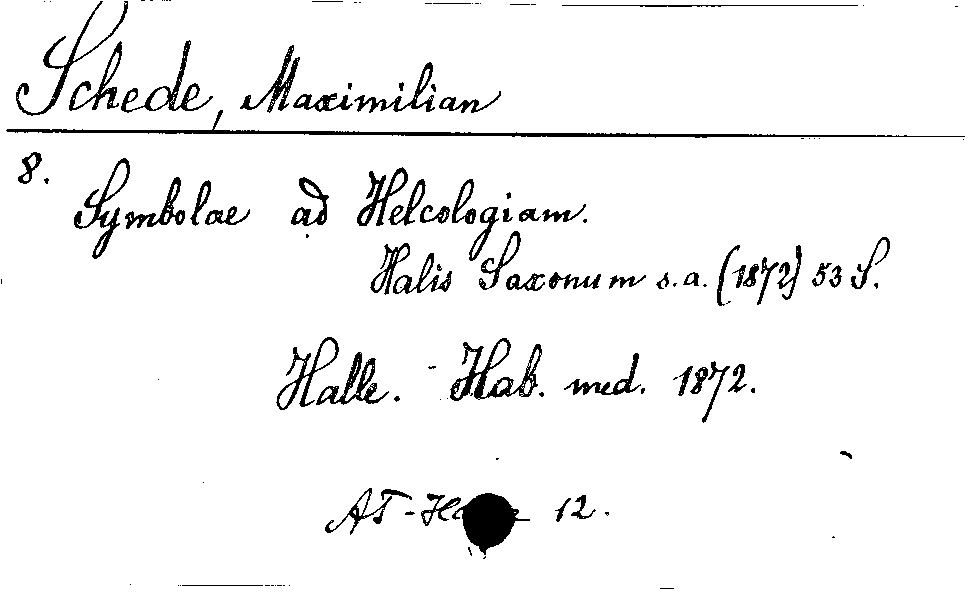 Schede, Maximilian
8.
Symbolae ad Helcologiam.
Halis Saxonum s.a. (1872) 53 S.
Halle. - Hab. med. 1872.
AT- 12.